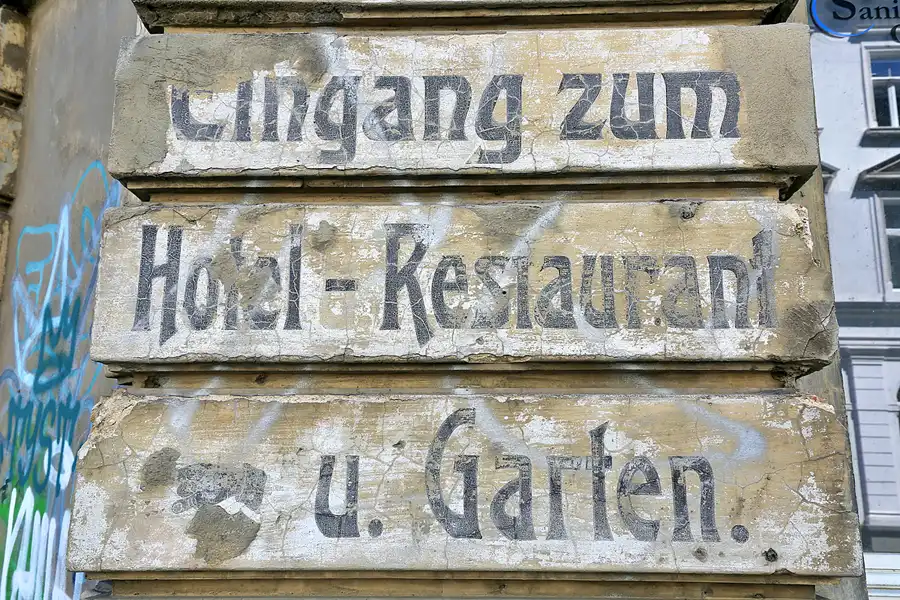 Eingang zum
Hotel - Restaurant
u. Garten.
Sani